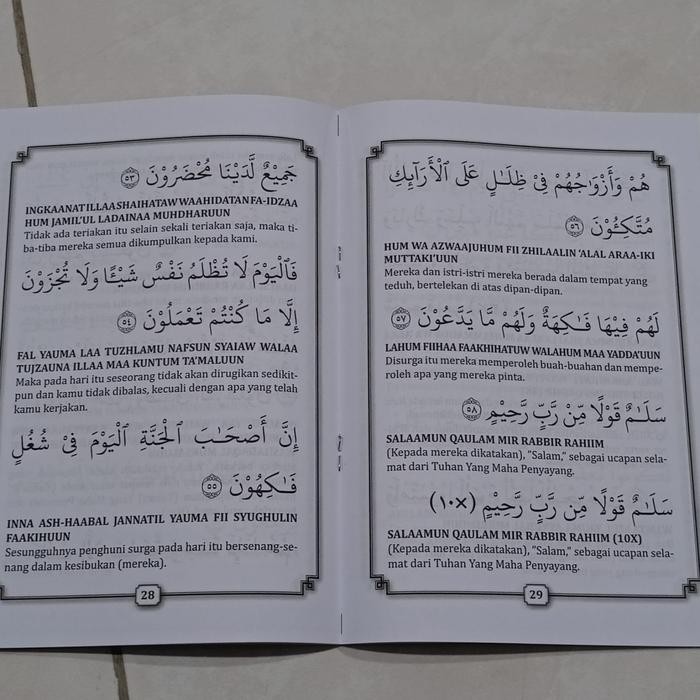 جَمِيْعٌ لَّدَيْنَا مُحْضَرُوْنَ ۝٥٣
INGKAANAT ILLAA SHAIHATAW WAAHIDATAN FA-IDZAA
HUM JAMII'UL LADAINAA MUHDHARUUN
Tidak ada teriakan itu selain sekali teriakan saja, maka ti-
ba-tiba mereka semua dikumpulkan kepada kami.
فَالْيَوْمَ لَا تُظْلَمُ نَفْسٌ شَيْـًٔا وَلَا تُجْزَوْنَ
اِلَّا مَا كُنْتُمْ تَعْمَلُوْنَ ۝٥٤
FAL YAUMA LAA TUZHLAMU NAFSUN SYAIAW WALAA
TUJZAUNA ILLAA MAA KUNTUM TA'MALUUN
Maka pada hari itu seseorang tidak akan dirugikan sedikit-
pun dan kamu tidak dibalas, kecuali dengan apa yang telah
kamu kerjakan.
اِنَّ اَصْحٰبَ الْجَنَّةِ الْيَوْمَ فِيْ شُغُلٍ
فٰكِهُوْنَ ۝٥٥
INNA ASH-HAABAL JANNATIL YAUMA FII SYUGHULIN
FAAKIHUUN
Sesungguhnya penghuni surga pada hari itu bersenang-se-
nang dalam kesibukan (mereka).
28
هُمْ وَاَزْوَاجُهُمْ فِيْ ظِلٰلٍ عَلَى الْاَرَاۤىِٕكِ
مُتَّكِـُٔوْنَ ۝٥٦
HUM WA AZWAAJUHUM FII ZHILAALIN 'ALAL ARAA-IKI
MUTTAKI'UUN
Mereka dan istri-istri mereka berada dalam tempat yang
teduh, bertelekan di atas dipan-dipan.
لَهُمْ فِيْهَا فَاكِهَةٌ وَّلَهُمْ مَّا يَدَّعُوْنَ ۝٥٧
LAHUM FIIHAA FAAKHIHATUW WALAHUM MAA YADDA'UUN
Disurga itu mereka memperoleh buah-buahan dan mempe-
roleh apa yang mereka pinta.
سَلٰمٌ قَوْلًا مِّنْ رَّبٍّ رَّحِيْمٍ ۝٥٨
SALAAMUN QAULAM MIR RABBIR RAHIIM
(Kepada mereka dikatakan), "Salam," sebagai ucapan sela-
mat dari Tuhan Yang Maha Penyayang.
سَلٰمٌ قَوْلًا مِّنْ رَّبٍّ رَّحِيْمٍ (١٠x)
SALAAMUN QAULAM MIR RABBIR RAHIIM (10X)
(Kepada mereka dikatakan), "Salam," sebagai ucapan sela-
mat dari Tuhan Yang Maha Penyayang.
29